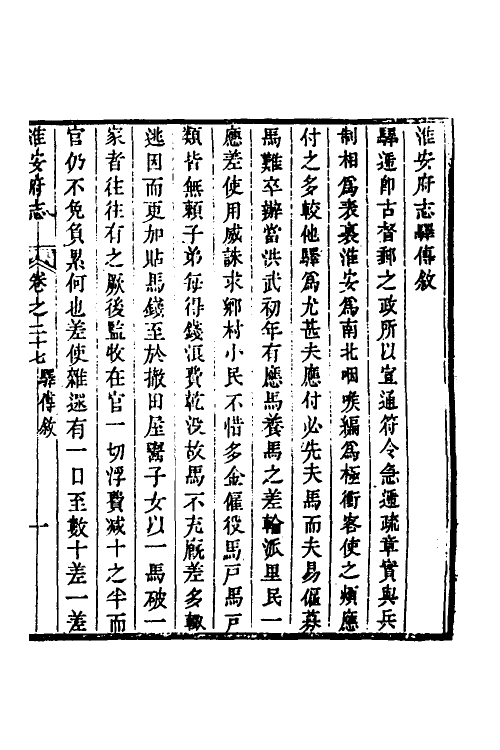 淮安府志驛傳敘
驛遞卽古督郵之政所以宣通符令急遞疏章實與兵
制相為表裏淮安為南北咽喉編為極衝客使之頻應
付之多較他驛為尤甚夫應付必先夫馬而夫易僱募
馬難卒辦當洪武初年有應馬養馬之差輪派里民一
應差使用威誅求鄉村小民不惜多金僱役馬戸馬戸
類皆無賴子弟每得錢浪費乾没故馬不充廐差多輙
逃因而更加貼馬錢至於撤田屋鬻子女以一馬破一
家者往往有之厥後監牧在官一切浮費减十之半而
官仍不免負累何也差使雜遝有一日至數十差一差
淮安府志
卷之二十七 驛傳敘
一